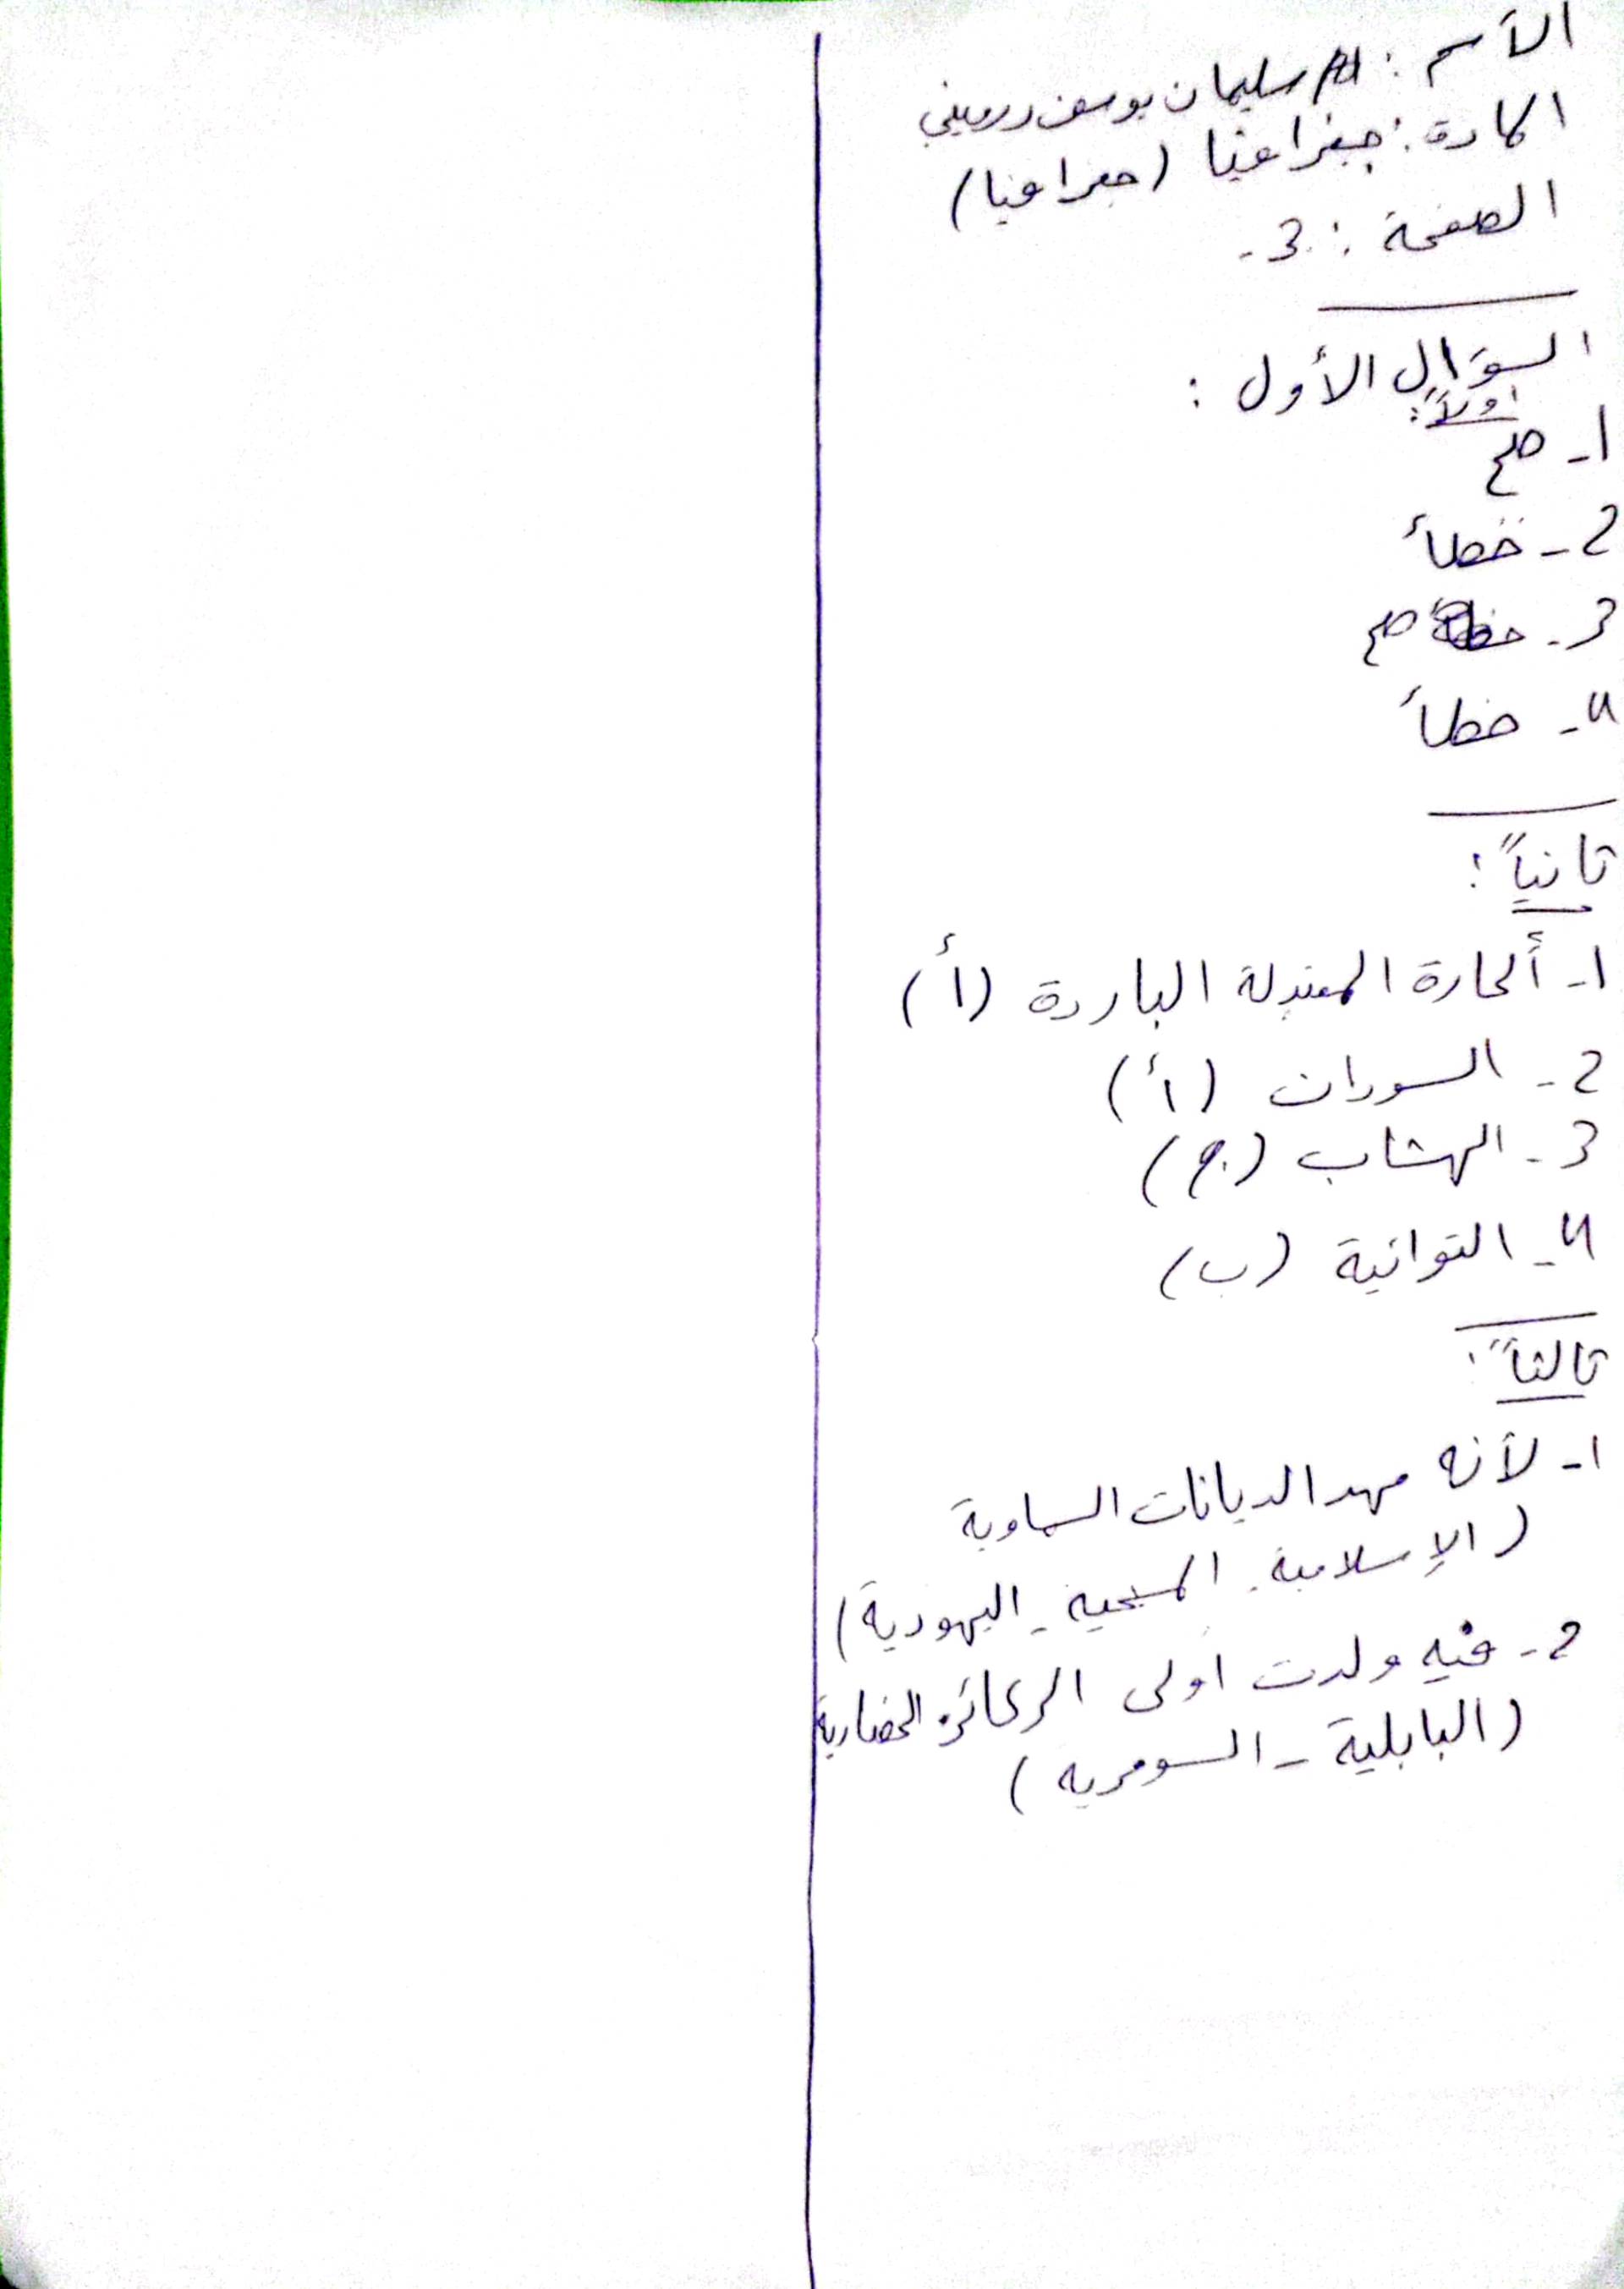 الأسم : سليمان يوسف درويش
المادة : جغرافيا (جغرافيا)
الصفحة : 3-
السؤال الأول :
اولاً :
1- صح
2- خطأ
3- صح
4- خطأ
ثانياً :
1- ألحارة المعتدلة الباردة (أ)
2- السودان (أ)
3- الهشاب (ج)
4- التوانية (ب)
ثالثاً :
1- لأنه مهد الديانات السماوية
(الإسلامية - المسيحية - اليهودية)
2- فيه ولدت اولى الركائز الحضارية
(البابلية - السومرية)